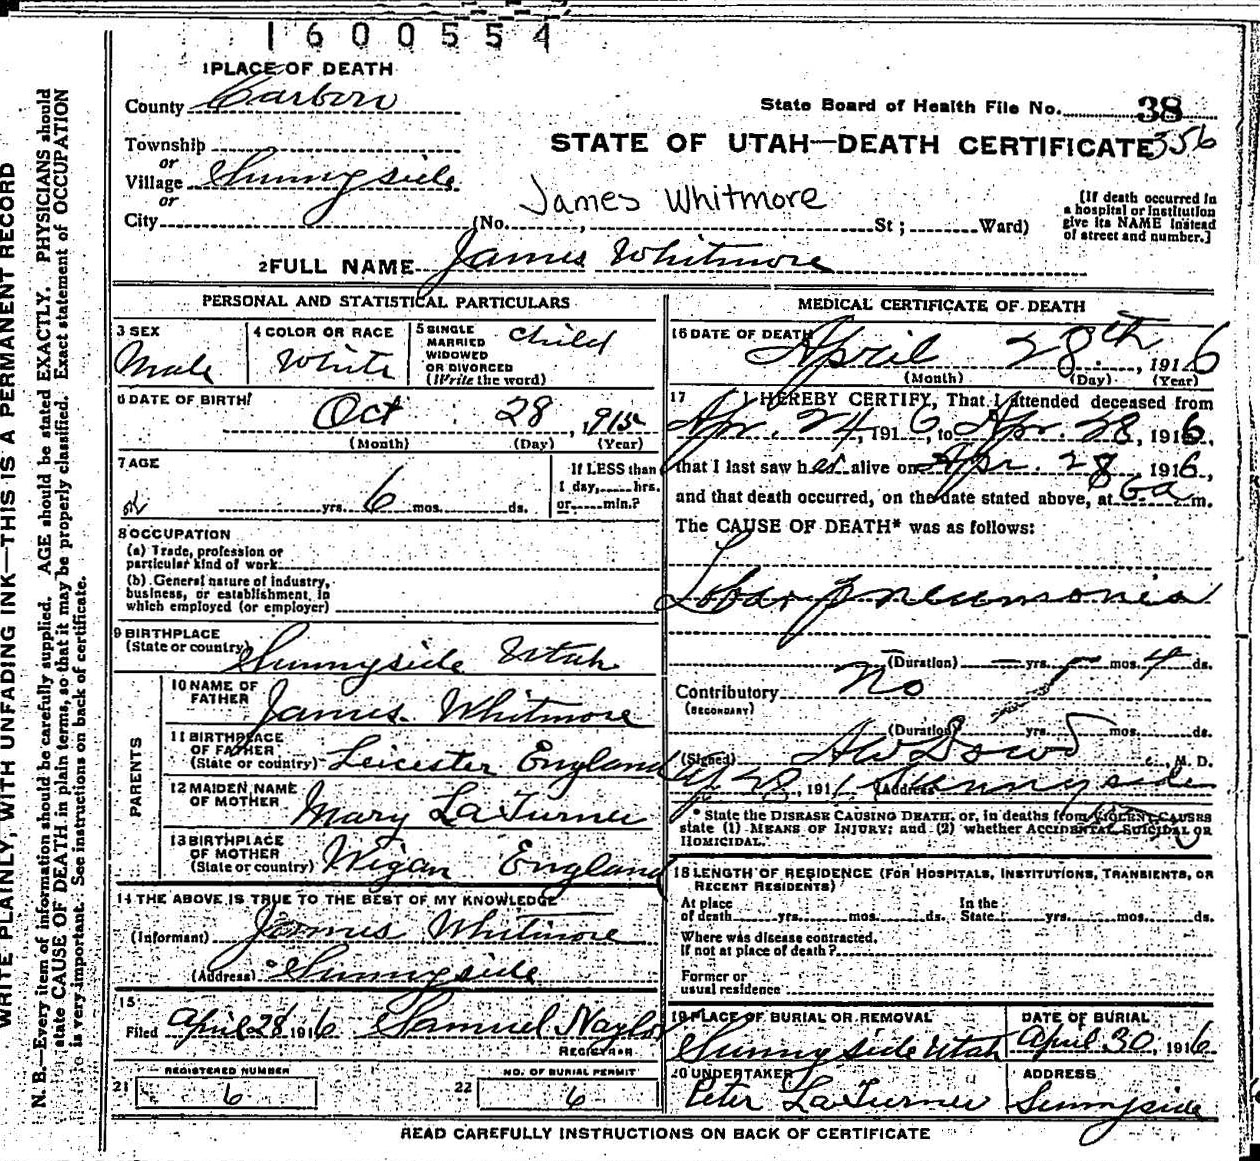 1600554
1 PLACE OF DEATH
County Carbon
State Board of Health File No. 38
Township
STATE OF UTAH—DEATH CERTIFICATE 356
or
Village Sunnyside
or
James Whitmore
[If death occurred in a hospital or institution give its NAME instead of street and number.]
City (No. , St ; Ward)
2 FULL NAME James Whitmore
PERSONAL AND STATISTICAL PARTICULARS
3 SEX Male
4 COLOR OR RACE White
5 SINGLE MARRIED WIDOWED OR DIVORCED (Write the word) child
6 DATE OF BIRTH Oct 28, 1915
(Month) (Day) (Year)
7 AGE
yrs. 6 mos. ds.
If LESS than 1 day, hrs. or min.?
8 OCCUPATION
(a) Trade, profession or
particular kind of work
(b) General nature of industry,
business, or establishment in
which employed (or employer)
9 BIRTHPLACE
(State or country) Sunnyside Utah
PARENTS
10 NAME OF FATHER James Whitmore
11 BIRTHPLACE OF FATHER (State or country) Leicester England
12 MAIDEN NAME OF MOTHER Mary LaTurner
13 BIRTHPLACE OF MOTHER (State or country) Wigan England
14 THE ABOVE IS TRUE TO THE BEST OF MY KNOWLEDGE
(Informant) James Whitmore
(Address) Sunnyside
15
Filed April 28 1916 Samuel Naylor
REGISTRAR
21 REGISTERED NUMBER 6
22 NO. OF BURIAL PERMIT 6
MEDICAL CERTIFICATE OF DEATH
16 DATE OF DEATH
April 28th, 1916
(Month) (Day) (Year)
17 I HEREBY CERTIFY, That I attended deceased from
Apr. 24, 1916, to Apr. 28, 1916,
that I last saw h er alive on Apr. 28, 1916,
and that death occurred, on the date stated above, at 6 a m.
The CAUSE OF DEATH* was as follows:
Lobar Pneumonia
(Duration) — yrs. — mos. 4 ds.
Contributory No
(SECONDARY)
(Duration) yrs. mos. ds.
(Signed) A W Dowd, M. D.
Ap 28, 191 (Address) Sunnyside
* State the DISEASE CAUSING DEATH, or, in deaths from VIOLENT CAUSES
state (1) MEANS OF INJURY; and (2) whether ACCIDENTAL, SUICIDAL OR
HOMICIDAL.
18 LENGTH OF RESIDENCE (FOR HOSPITALS, INSTITUTIONS, TRANSIENTS, OR
RECENT RESIDENTS)
At place of death yrs. mos. ds. In the State yrs. mos. ds.
Where was disease contracted,
If not at place of death?
Former or
usual residence
19 PLACE OF BURIAL OR REMOVAL Sunnyside Utah
DATE OF BURIAL April 30, 1916
20 UNDERTAKER Peter LaTurner
ADDRESS Sunnyside
READ CAREFULLY INSTRUCTIONS ON BACK OF CERTIFICATE
WRITE PLAINLY, WITH UNFADING INK—THIS IS A PERMANENT RECORD
N. B.—Every item of information should be carefully supplied. AGE should be stated EXACTLY. PHYSICIANS should
state CAUSE OF DEATH in plain terms, so that it may be properly classified. Exact statement of OCCUPATION
is very important. See instructions on back of certificate.